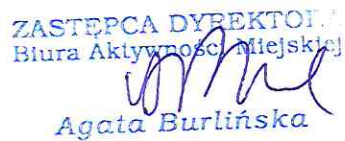 ZASTĘPCA DYREKTORA
Biura Aktywności Miejskiej
Agata Burlińska